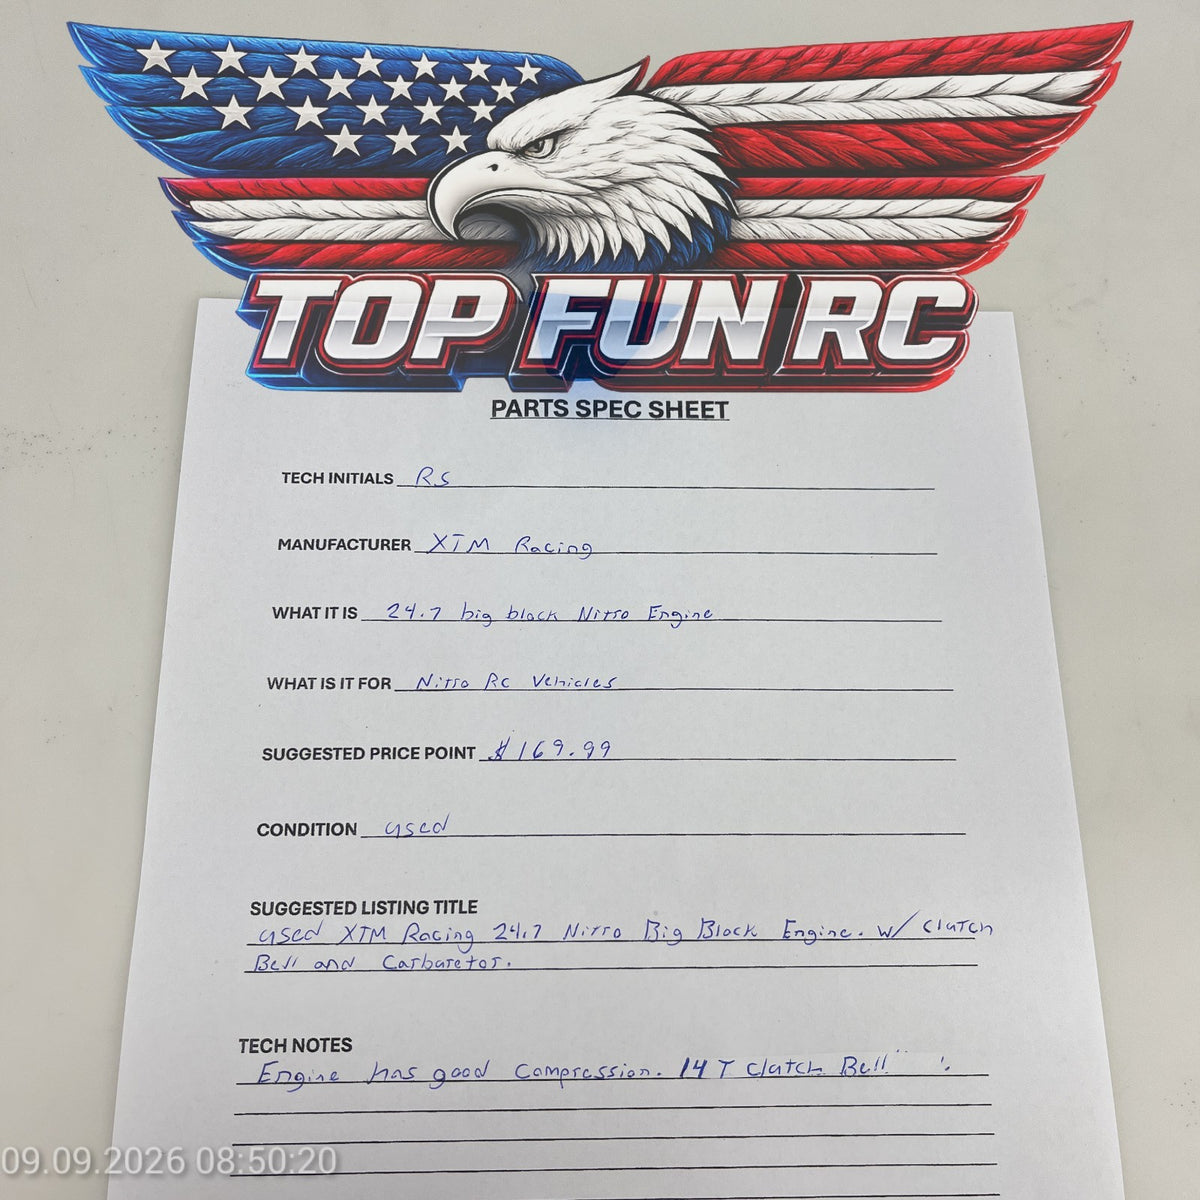 TOP FUN RC
PARTS SPEC SHEET
TECH INITIALS RS
MANUFACTURER XTM Racing
WHAT IT IS 24.7 big block Nitro Engine
WHAT IS IT FOR Nitro Rc Vehicles
SUGGESTED PRICE POINT $169.99
CONDITION used
SUGGESTED LISTING TITLE
used XTM Racing 24.7 Nitro Big Block Engine. w/ Clutch
Bell and Carburetor.
TECH NOTES
Engine has good Compression. 14T Clutch Bell
09.09.2026 08:50:20